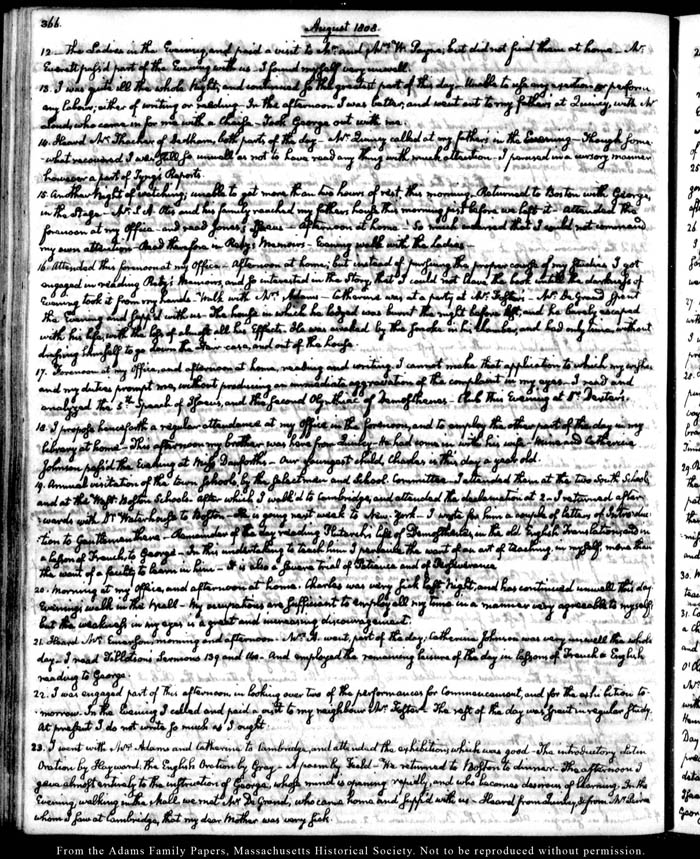 366.
August 1808.
12. The Ladies in the Evening and paid a visit to Mr. and Mrs. W. Payne; but did not find them at home. Mr.
Everett pass'd part of the Evening with us. I found myself very unwell.
13. I was quite ill the whole Night, and continued so the greatest part of this day. Unable to use any exertion or perform
any labour, either of writing or reading. In the afternoon I was better, and went out to my father's at Quincy, with Mr
who came in for me with a Chaise. Took George out with me.
14. Heard Mr. Thacher of Dedham, both parts of the day. Mr. Quincy called at my father's in the Evening. Though some-
what recovered I was still so unwell as not to have read any thing with much attention. I perused in a cursory manner
however a part of Tyng's Reports.
15. Another Night of watching; unable to get more than two hours of rest, this morning. Returned to Boston with George,
in the Stage. Mr. S. A. Otis and his family reached my father's house this morning just before we left it. Attended this
forenoon at my Office and read Jones's Isaeus. Afternoon at home. So much wearied that I could not command
my own attention. Read therefore in Ratzy's Memoirs. Evening walk with the Ladies.
16. Attended this forenoon at my Office. Afternoon at home; but instead of pursuing the proper course of my Studies, I got
engaged in reading Memoirs, and so interested in the Story, that I could not leave the book untill the darkness of
Evening took it from my hands. Walk with Mrs. Adams. Catherine was at a party at Mr. Foster's. Mr. De Grand spent
the Evening and supp'd with us. The house in which he lodged was burnt the night before last, and he barely escaped
with his life, with the loss of almost all his Effects. He was awaked by the smoke in his chamber, and had only time, without
dressing himself to go down the Stair case, and out of the house.
17. Forenoon at my Office, and afternoon at home, reading and writing. I cannot make that application to which my wishes
and my duties prompt me, without producing an immediate aggravation of the complaint in my eyes. I read and
analyzed the 5th. Speech of Isaeus, and the second Olynthiac of Demosthenes. Club this Evening at Dr. Dexter's.
18. I propose henceforth a regular attendance at my Office in the forenoon, and to employ the other part of the day in my
library at home. This afternoon my brother was here from Quincy. He had come in with his wife. Mine and Catherine
Johnson pass'd the Evening at Miss Danforth's. Our youngest child, Charles is this day a year old.
19. Annual visitation of the town Schools, by the Selectmen and School Committee. I attended them at the two South Schools
and at the West Boston Schools: after which I walk'd to Cambridge, and attended the declamation at 2. I returned after-
wards with Dr. Waterhouse to Boston. He is going next week to New-York. I wrote for him a couple of letters of Introduc-
tion to Gentlemen there. Remainder of the day reading Plutarch's life of Demosthenes, in the old English Translation; and in
a lesson of French, to George. In this undertaking to teach him I perceive the want of an art of teaching in myself, more than
the want of a faculty to learn in him. It is also a severe trial of Patience and of Perseverance.
20. Morning at my office, and afternoon at home. Charles was very sick last Night, and has continued unwell this day.
Evening walk in the Mall. My occupations are sufficient to employ all my time in a manner very agreeable to myself;
but the weakness in my eyes is a great and increasing discouragement.
21. Heard Mr. Emerson, morning and afternoon. Mrs. A. went, part of the day; Catherine Johnson was very unwell the whole
day. I read Tillotson's Sermons 139 and 140. And employed the remaining leisure of the day in lessons of French & English
reading to George.
22. I was engaged part of this afternoon, in looking over two of the performances for Commencement, and for the exhibition to-
morrow. In the Evening I called and paid a visit to my neighbour Mr. Foster. The rest of the day was spent in regular study.
At present I do not write so much as I ought.
23. I went with Mrs. Adams and Catherine to Cambridge, and attended the exhibition; which was good. The introductory Latin
Oration by Heyward, the English Oration by Gray. A poem by Field. We returned to Boston to dinner. The afternoon I
gave almost entirely to the instruction of George, whose mind is opening rapidly, and who becomes desirous of learning. In the
Evening, walking in the Mall we met Mr. De Grand, who came home and supp'd with us. Heard from Quincy, & from
whom I saw at Cambridge, that my dear Mother was very sick.
From the Adams Family Papers, Massachusetts Historical Society. Not to be reproduced without permission.